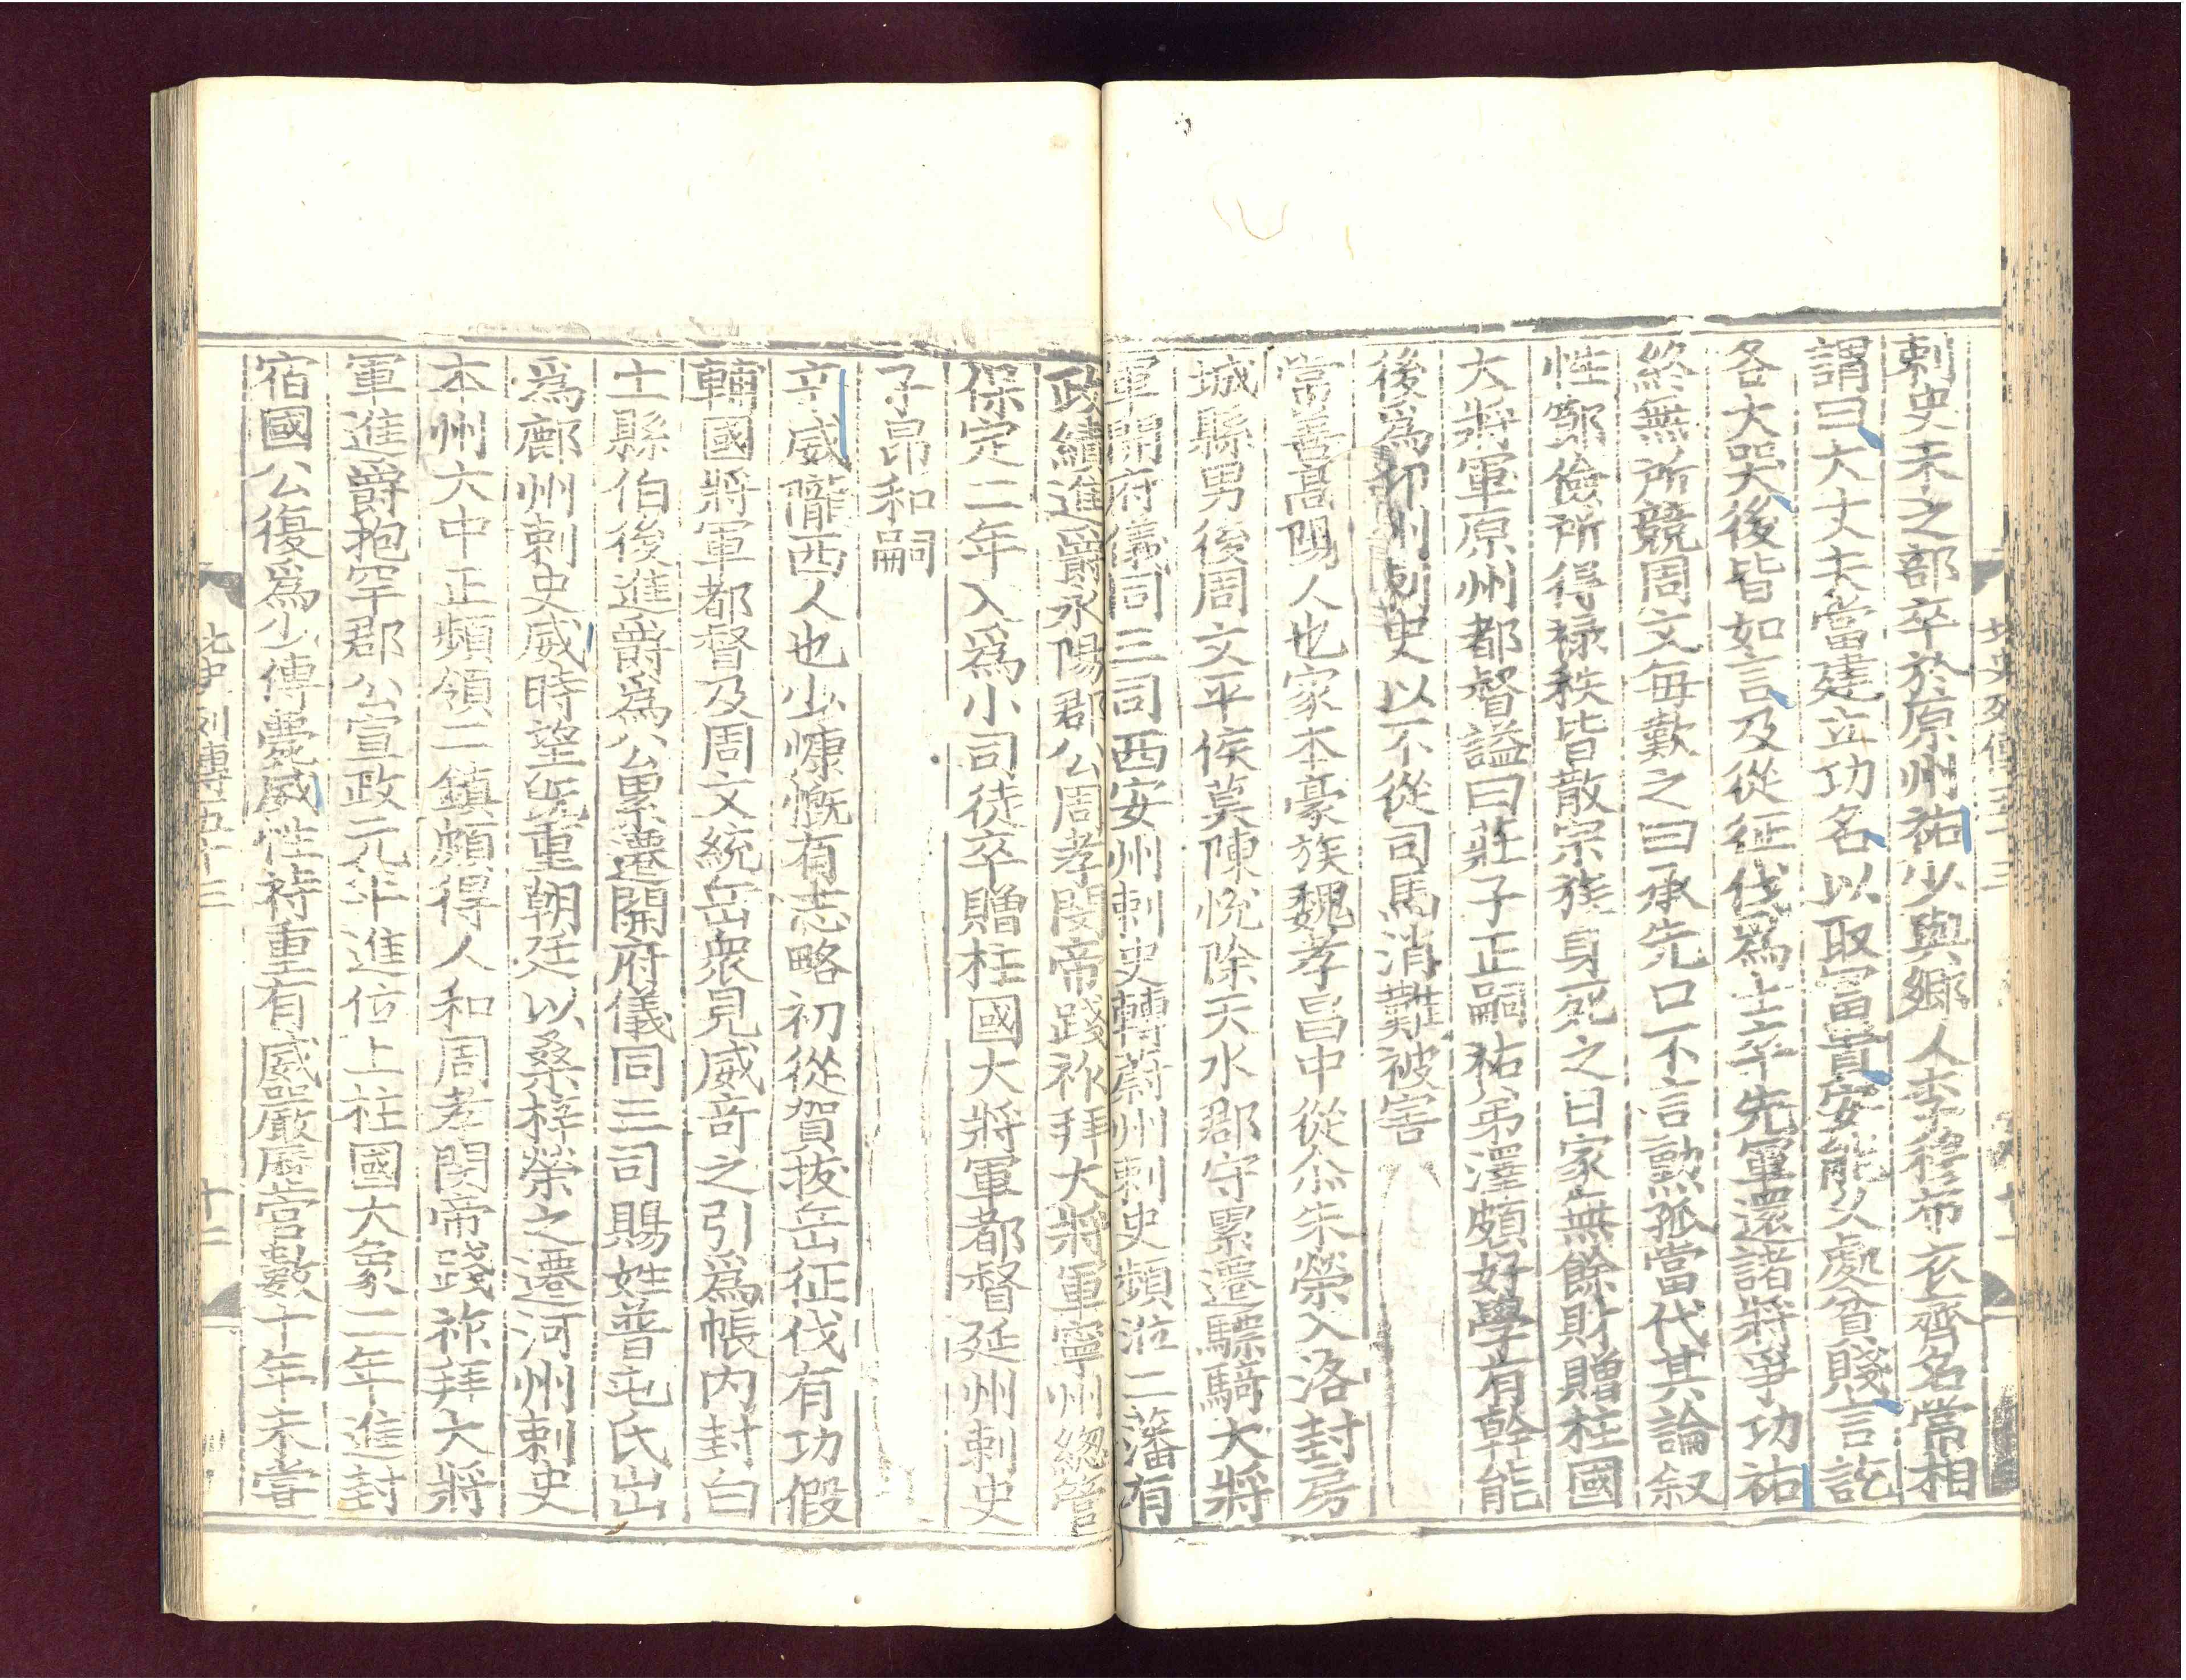 刺史未之部卒於原州祐少與鄉人李穆布衣齊名常相
謂曰大丈夫當建立功名以取富貴安能久處貧賤言訖
各大哭後皆如言及從征伐爲士卒先軍還諸將爭功祐
終無所競周文每歎之曰承先口不言勲孤當代其論叙
性節儉所得祿秩皆散宗族身死之日家無餘財贈柱國
大將軍原州都督謚曰莊子正嗣祐弟澤頗好學有幹能
後爲卭州刺史以不從司馬消難被害
常善髙陽人也家本豪族魏孝昌中從尒朱榮入洛封房
城縣男後周文平侯莫陳悅除天水郡守累遷驃騎大將
軍開府儀同三司西安州刺史轉蔚州刺史頻涖二藩有
政績進爵永陽郡公周孝閔帝踐祚拜大將軍寧州緫管
保定二年入爲小司徒卒贈柱國大將軍都督延州刺史
子昂和嗣
辛威隴西人也少慷慨有志略初從賀拔岳征伐有功假
輔國將軍都督及周文統岳衆見威竒之引爲帳內封白
土縣伯後進爵爲公累遷開府儀同三司賜姓普屯氏出
爲鄜州刺史威時望旣重朝廷以桑梓榮之遷河州刺史
本州大中正頻領二鎮頗得人和周孝閔帝踐祚拜大將
軍進爵抱罕郡公宣政元年進位上柱國大象二年進封
宿國公復爲少傅薨威性持重有威嚴歷官數十年未嘗
北史列傳五十三
十二